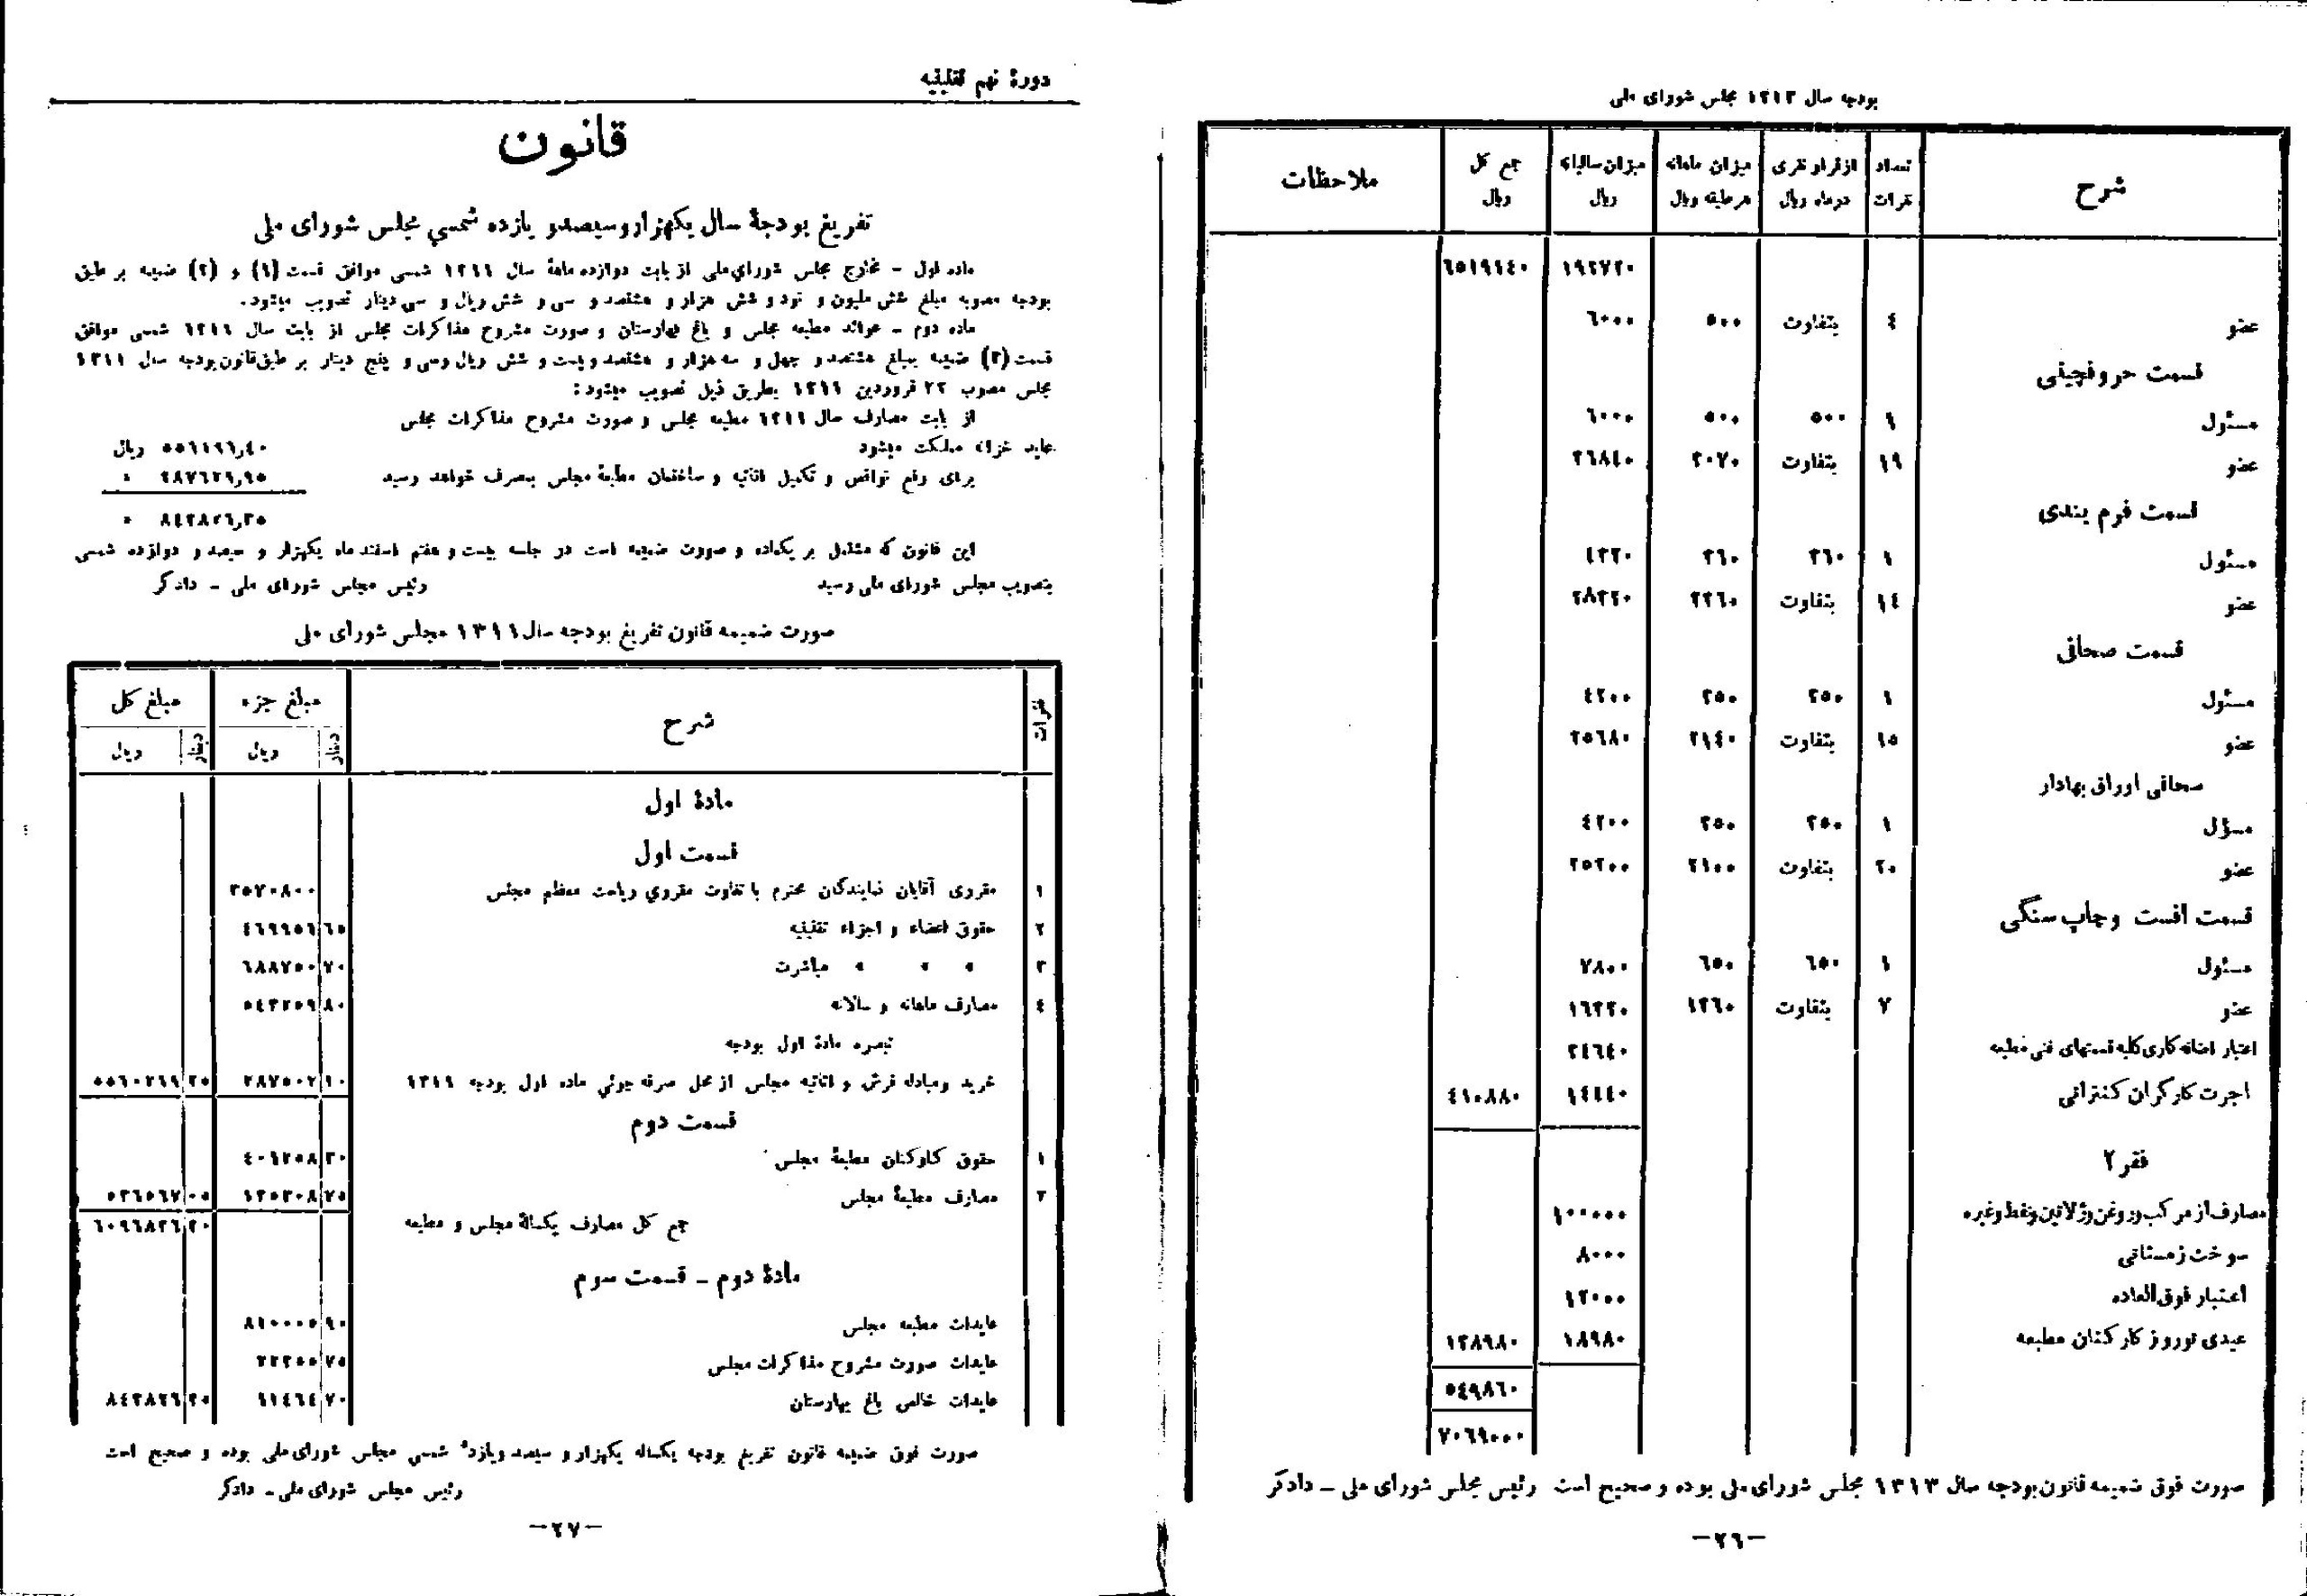 بودجه سال ۱۳۱۳ مجلس شورای ملی
شرح تعداد نفرات از قرار نفری در ماه ریال میزان ماهانه هر طبقه ریال میزان سالیانه ریال جمع کل ریال ملاحظات
۱۹٦۹۲۰ ٦٥۱۹۱٤۰
عضو ٤ بتفاوت ٥۰۰ ٦۰۰۰
قسمت حروفچینی
مسئول ۱ ٥۰۰ ٥۰۰ ٦۰۰۰
عضو ۱۹ بتفاوت ۳۰۷۰ ۳٦۸٤۰
قسمت فرم بندی
مسئول ۱ ۳٦۰ ۳٦۰ ٤۳۲۰
عضو ۱٤ بتفاوت ۲۳٦۰ ۲۸۳۲۰
قسمت صحافی
مسئول ۱ ۳٥۰ ۳٥۰ ٤۲۰۰
عضو ۱٥ بتفاوت ۲۱٤۰ ۲٥٦۸۰
صحافی اوراق بهادار
مسؤل ۱ ۳٥۰ ۳٥۰ ٤۲۰۰
عضو ۲۰ بتفاوت ۲۱۰۰ ۲٥۲۰۰
قسمت افست و چاپ سنگی
مسئول ۱ ٦٥۰ ٦٥۰ ۷۸۰۰
عضو ۷ بتفاوت ۱۳٦۰ ۱٦۳۲۰
اعتبار اضافه کاری کلیه قسمتهای فنی مطبعه ۳٤٦٤۰
اجرت کارگران کنتراتی ۱٤٤٤۰ ٤۱۰۸۸۰
فقره ۲
مصارف از مرکب و روغن و ژلاتین و نفط و غیره ۱۰۰۰۰۰
سوخت زمستانی ۸۰۰۰
اعتبار فوق العاده ۱۲۰۰۰
عیدی نوروز کارکنان مطبعه ۱۸۹۸۰ ۱۳۸۹۸۰
٥٤۹۸٦۰
۷۰٦۹۰۰۰
صورت فوق ضمیمه قانون بودجه سال ۱۳۱۳ مجلس شورای ملی بوده و صحیح است رئیس مجلس شورای ملی ـ دادگر
—۲٦—
دورهٔ نهم تقنینیه
قانون
تفریغ بودجهٔ سال یکهزار و سیصد و یازده شمسی مجلس شورای ملی
ماده اول - مخارج مجلس شورای ملی از بابت دوازده ماههٔ سال ۱۳۱۱ شمسی موافق قسمت (۱) و (۲) ضمیمه بر طبق
بودجه مصوبه مبلغ شش ملیون و نود و شش هزار و هشتصد و سی و شش ریال و سی دینار تصویب میشود.
ماده دوم - عوائد مطبعه مجلس و باغ بهارستان و صورت مشروح مذاکرات مجلس از بابت سال ۱۳۱۱ شمسی موافق
قسمت (۳) ضمیمه بمبلغ هشتصد و چهل و سه هزار و هشتصد و بیست و شش ریال و سی و پنج دینار بر طبق قانون بودجه سال ۱۳۱۱
مجلس مصوب ۲۲ فروردین ۱۳۱۱ بطریق ذیل تصویب میشود:
از بابت مصارف سال ۱۳۱۱ مطبعه مجلس و صورت مشروح مذاکرات مجلس
عاید خزانه مملکت میشود ٥٥٦۱۹٦٫٤۰ ریال
برای رفع نواقص و تکمیل اثاثیه و ساختمان مطبعهٔ مجلس بمصرف خواهد رسید ۲۸۷٦۲۹٫۹٥ »
۸٤۳۸۲٦٫۳٥ »
این قانون که مشتمل بر یکماده و صورت ضمیمه است در جلسه بیست و هفتم اسفند ماه یکهزار و سیصد و دوازده شمسی
بتصویب مجلس شورای ملی رسید رئیس مجلس شورای ملی ـ دادگر
صورت ضمیمه قانون تفریغ بودجه سال ۱۳۱۱ مجلس شورای ملی
فقرات شرح مبلغ جزء مبلغ کل
دینار ریال دینار ریال
مادهٔ اول
قسمت اول
۱ مقرری آقایان نمایندگان محترم با تفاوت مقرری ریاست معظم مجلس ۳٥۷۰۸۰۰
۲ حقوق اعضاء و اجزاء تقنینیه ٤٦۹۹٥٦ ٦٥
۳ » » » مباشرت ٦۸۸۷٥۰ ۷۰
٤ مصارف ماهانه و سالانه ٥٤۳۲٥۹ ۸۰
تبصره مادهٔ اول بودجه
خرید و مبادله فرش و اثاثیه مجلس از محل صرفه جوئی ماده اول بودجه ۱۳۱۱ ۲۸۷٥۰۲ ۱۰ ٥٥٦۰۲٦۹ ۲٥
قسمت دوم
۱ حقوق کارکنان مطبعهٔ مجلس ٤۱۱۲٥۸ ۳۰
۲ مصارف مطبعهٔ مجلس ۱۲٥۳۰۸ ۷٥ ٥۳٦٥٦۷ ۰٥
جمع کل مصارف یکسالهٔ مجلس و مطبعه ٦۰۹٦۸۳٦ ۳۰
مادهٔ دوم ـ قسمت سوم
عایدات مطبعه مجلس ۸۱۰۰۰٥ ۹۰
عایدات صورت مشروح مذاکرات مجلس ۲۲۳٥٥ ۷٥
عایدات خالص باغ بهارستان ۱۱٤٦٤ ۷۰ ۸٤۳۸۲٦ ۳٥
صورت فوق ضمیمه قانون تفریغ بودجه یکساله یکهزار و سیصد و یازدهٔ شمسی مجلس شورای ملی بوده و صحیح است
رئیس مجلس شورای ملی ـ دادگر
—۲۷—